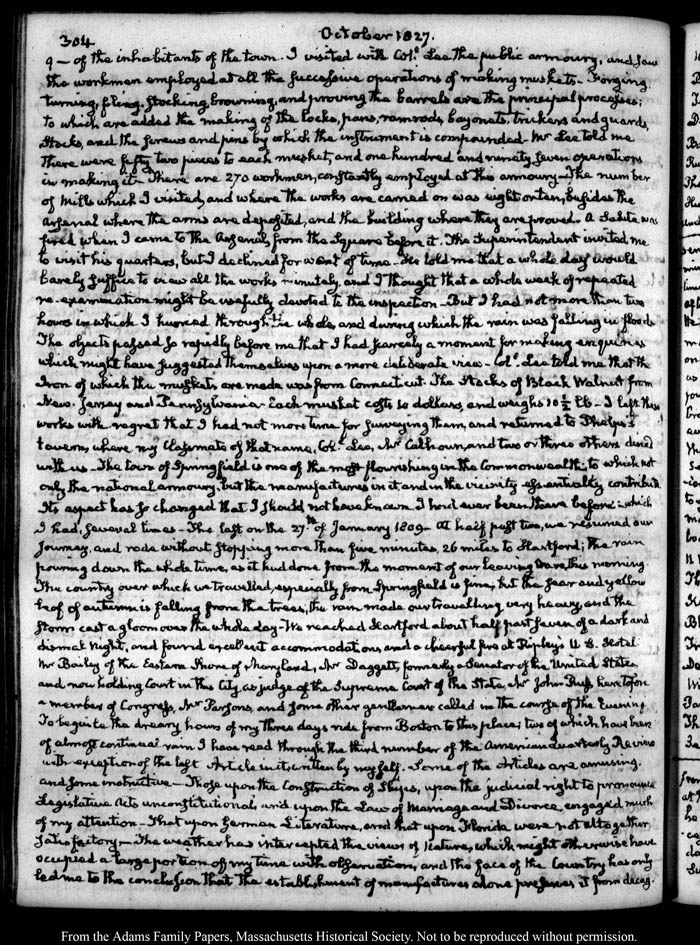 304
October 1827.
9 — of the inhabitants of the town. I visited with Col.l Lee the public armoury, and saw
the workmen employed at all the successive operations of making muskets. Forging,
turning, filing, stocking, browning, and proving the barrels are the principal processes;
to which are added the making of the locks, pans, ramrods, bayonets, trickers and guards,
stocks, and the screws and pins by which the instrument is compounded. Mr Lee told me
there were fifty two pieces to each musket, and one hundred and ninety seven operations
in making it. There are 270 workmen, constantly employed at this armoury. The number
of Mills which I visited, and where the works are carried on was eight or ten, besides the
Arsenal where the arms are deposited, and the building where they are proved. A Salute was
fired when I came to the Arsenal, from the Square before it. The Superintendent invited me
to visit his quarters, but I declined for want of time. He told me that a whole day would
barely suffice to view all the works minutely, and I thought that a whole week of repeated
re-examination might be usefully devoted to the inspection. But I had not more than two
hours in which I hurried through the whole, and during which the rain was falling in floods
The objects passed so rapidly before me that I had scarcely a moment for making enquiries
which might have suggested themselves upon a more deliberate view. Col.l Lee told me that the
Iron of which the muskets are made was from Connecticut. The Stocks of Black Walnut from
New-Jersey and Pennsylvania. Each musket costs 10 dollars, and weighs 10 ½ lb. I left these
works with regret that I had not more time for surveying them, and returned to Phelps's
tavern, where my Classmate of that name, Col.l Lee, Mr Calhoun, and two or three others dined
with us. The town of Springfield is one of the most flourishing in the Commonwealth; to which not
only the national armoury, but the manufactures in it and in the vicinity essentially contribute.
Its aspect has so changed that I should not have known I had ever been there before; in which
I had, several times. The last on the 27.th of January 1809. At half past two, we resumed our
Journey, and rode without stopping more than five minutes, 26 miles to Hartford; the rain
pouring down the whole time, as it had done from the moment of our leaving Ware this morning.
The country over which we travelled, especially from Springfield is fine; but the sear and yellow
leaf of autumn is falling from the trees; the rain made our travelling very heavy, and the
storm cast a gloom over the whole day. We reached Hartford about half past seven of a dark and
dismal Night, and found excellent accommodations and a cheerful fire at Ripley's U. S. Hotel
Mr Bailey of the Eastern Shore of Maryland, Mr Daggett, formerly a Senator of the United States,
and now holding Court in this City as judge of the Supreme Court of the State, Mr John Russ, heretofore
a member of Congress, Mr Parsons, and some other gentlemen called in the course of the Evening.
To beguile the dreary hours of my three days ride from Boston to this place; two of which have been
of almost continual rain I have read through the third number of the American Quarterly Review
with exception of the last Article in it, written by myself. Some of the Articles are amusing,
and some instructive. Those upon the Construction of Ships, upon the judicial right to pronounce
Legislative Acts unconstitutional, and upon the Law of Marriage and Divorce, engaged much
of my attention. That upon German Literature, and that upon Florida were not altogether
satisfactory. The weather has intercepted the views of Nature, which might otherwise have
occupied a large portion of my time with observation, and the face of the Country has only
led me to the conclusion that the establishment of manufactures alone preserves it from decay.
From the Adams Family Papers, Massachusetts Historical Society. Not to be reproduced without permission.